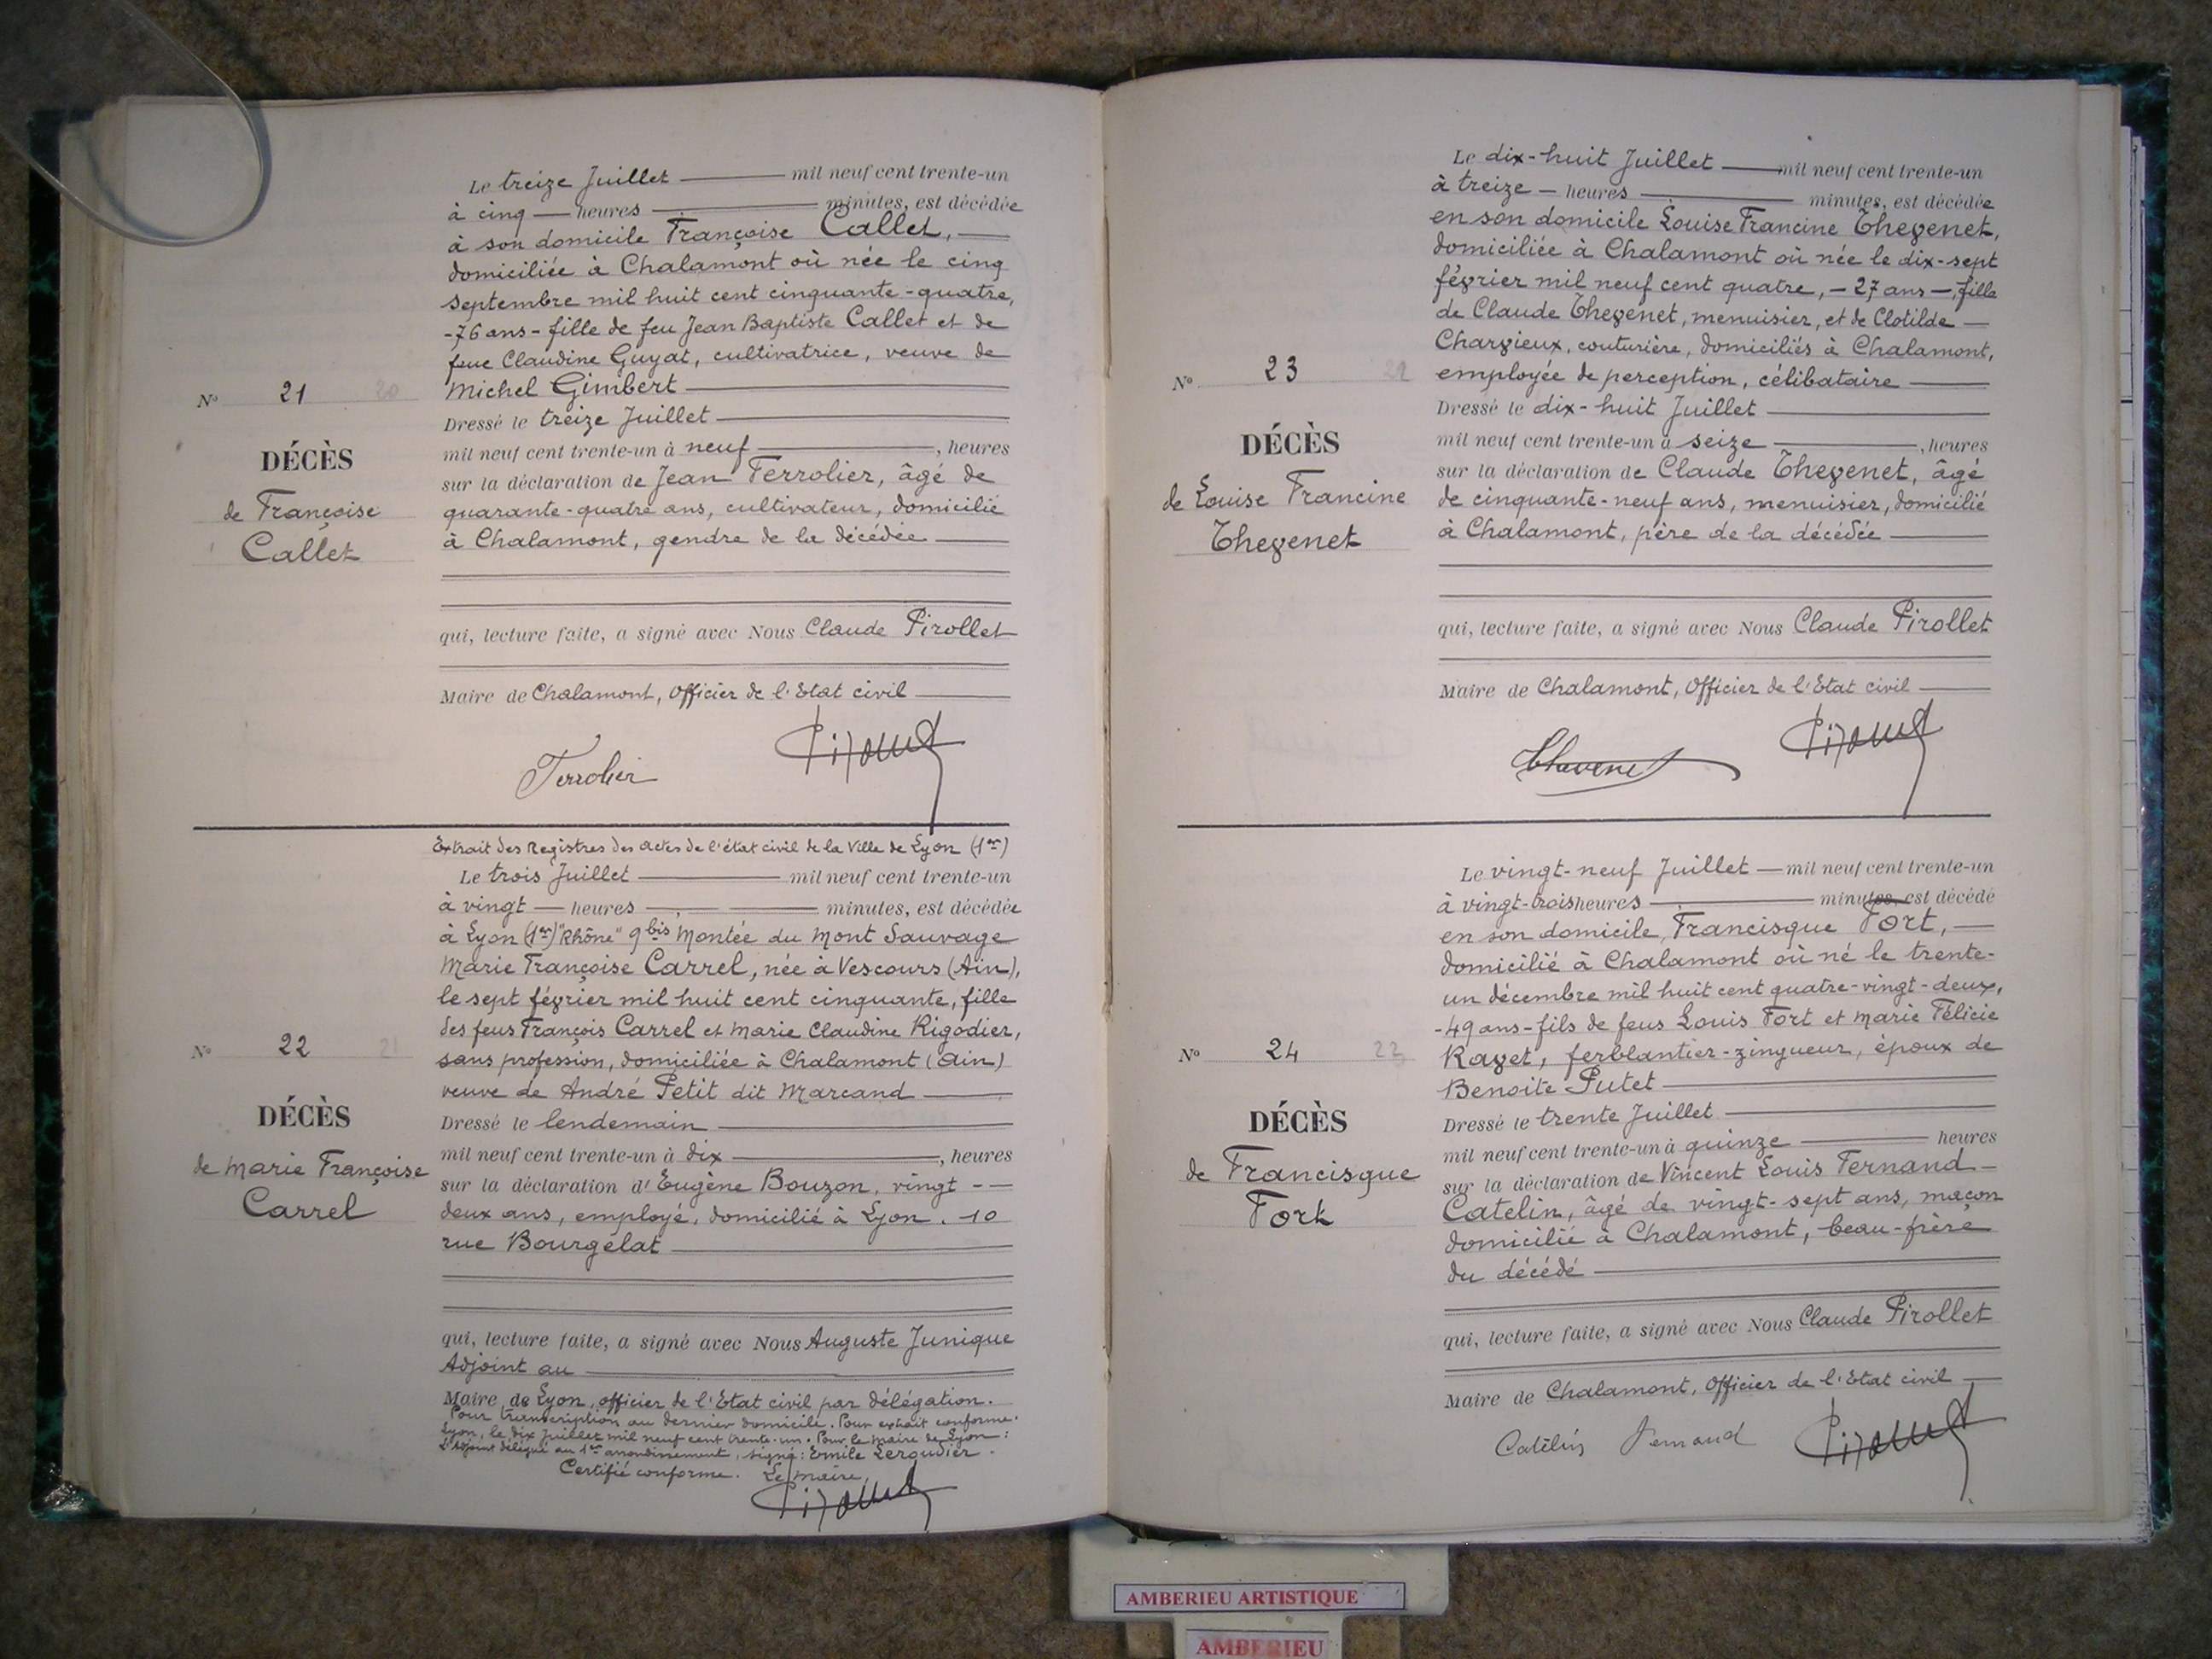 Le treize Juillet mil neuf cent trente-un
à cinq heures minutes, est décédée
à son domicile Françoise Callet,
domiciliée à Chalamont où née le cinq
septembre mil huit cent cinquante-quatre,
-76 ans- fille de feu Jean Baptiste Callet et de
feue Claudine Guyat, cultivatrice, veuve de
Michel Gimbert
Nº 21 20
Dressé le treize Juillet
mil neuf cent trente-un à neuf, heures
DÉCÈS
sur la déclaration de Jean Ferrolier, âgé de
de Françoise
quarante-quatre ans, cultivateur, domicilié
Callet
à Chalamont, gendre de la décédée
qui, lecture faite, a signé avec Nous Claude Pirollet
Maire de Chalamont, Officier de l'Etat civil
Ferrolier
Extrait des Registres des actes de l'état civil de la Ville de Lyon (1er)
Le trois Juillet mil neuf cent trente-un
à vingt heures minutes, est décédée
à Lyon (1er) "Rhône" 9bis Montée du Mont Sauvage
Marie Françoise Carrel, née à Vescours (Ain),
le sept février mil huit cent cinquante, fille
des feus François Carrel et Marie Claudine Rigodier,
Nº 22 21
sans profession, domiciliée à Chalamont (Ain)
veuve de André Petit dit Marcand
DÉCÈS
Dressé le lendemain
mil neuf cent trente-un à dix, heures
de Marie Françoise
Carrel
sur la déclaration d'Eugène Bouzon, vingt--
deux ans, employé, domicilié à Lyon. 10
rue Bourgelat
qui, lecture faite, a signé avec Nous Auguste Junique
Adjoint au
Maire de Lyon, officier de l'Etat civil par délégation.
Pour transcription au dernier domicile. Pour extrait conforme.
Lyon, le dix juillet mil neuf cent trente-un. Pour le Maire de Lyon:
L'Adjoint délégué au 1er arrondissement, signé: Emile
Certifié conforme. Le maire,
Le dix-huit Juillet mil neuf cent trente-un
à treize heures minutes, est décédée
en son domicile Louise Francine Thevenet,
domiciliée à Chalamont où née le dix-sept
février mil neuf cent quatre, - 27 ans -, fille
de Claude Thevenet, menuisier, et de Clotilde
Charvieux, couturière, domiciliés à Chalamont,
Nº 23
employée de perception, célibataire
Dressé le dix-huit Juillet
DÉCÈS
mil neuf cent trente-un à seize, heures
sur la déclaration de Claude Thevenet, âgé
de Louise Francine
Thevenet
de cinquante-neuf ans, menuisier, domicilié
à Chalamont, père de la décédée
qui, lecture faite, a signé avec Nous Claude Pirollet
Maire de Chalamont, Officier de l'Etat civil
Thevenet
Le vingt-neuf Juillet mil neuf cent trente-un
à vingt-trois heures minutes, est décédé
en son domicile, Francisque Fort,
domicilié à Chalamont où né le trente-
un décembre mil huit cent quatre-vingt-deux,
-49 ans- fils de feus Louis Fort et Marie Félicie
Nº 24 22
Ravet, ferblantier-zingueur, époux de
Benoite Putet
DÉCÈS
Dressé le trente Juillet
mil neuf cent trente-un à quinze heures
de Francisque
Fort
sur la déclaration de Vincent Louis Fernand
Catelin, âgé de vingt-sept ans, maçon
domicilié à Chalamont, beau-frère
du décédé
qui, lecture faite, a signé avec Nous Claude Pirollet
Maire de Chalamont, Officier de l'Etat civil
Catelin Fernand
AMBERIEU ARTISTIQUE
AMBERIEU